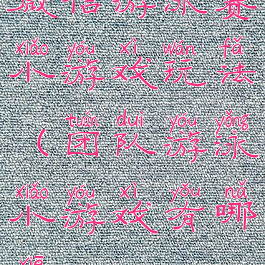 游泳赛
xiǎo yóu xì wán fǎ
小游戏玩法
tuán duì yóu yǒng
（团队游泳
xiǎo yóu xì yǒu nǎ
小游戏有哪